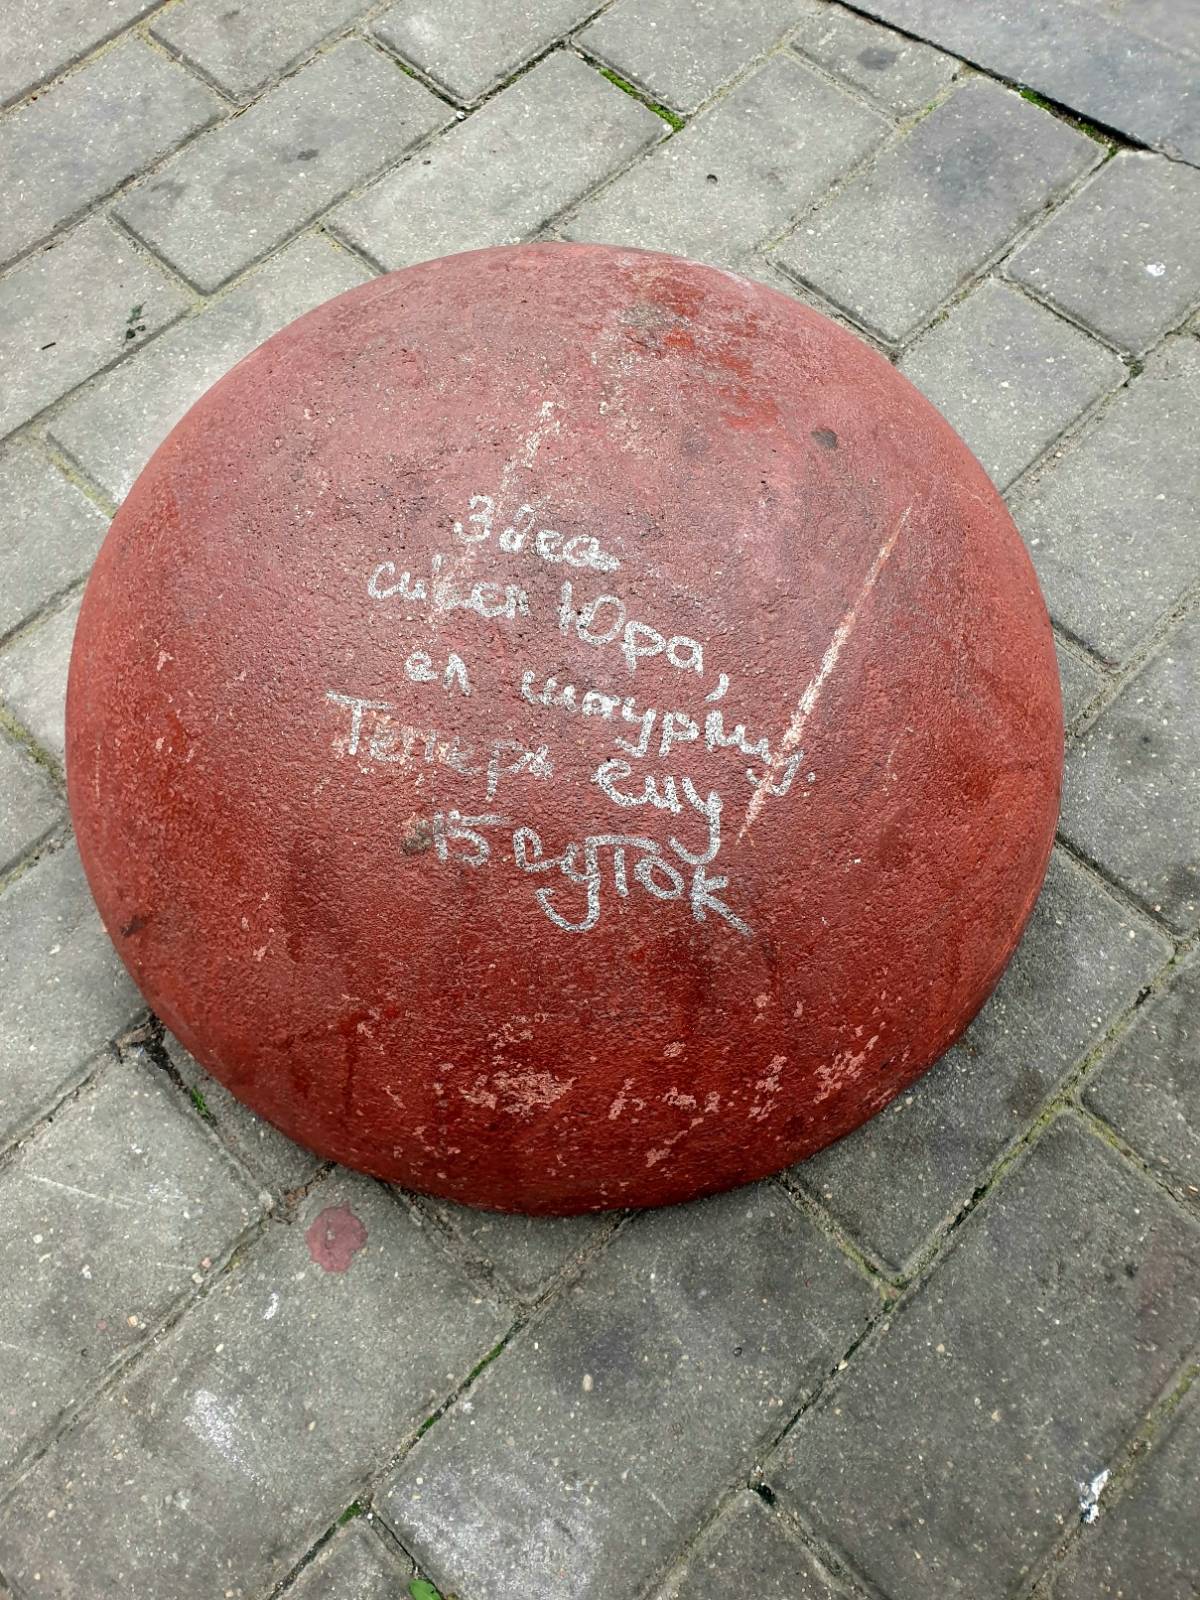 Здесь
сидел Юра,
ел шаурму.
Теперь ему
15 суток